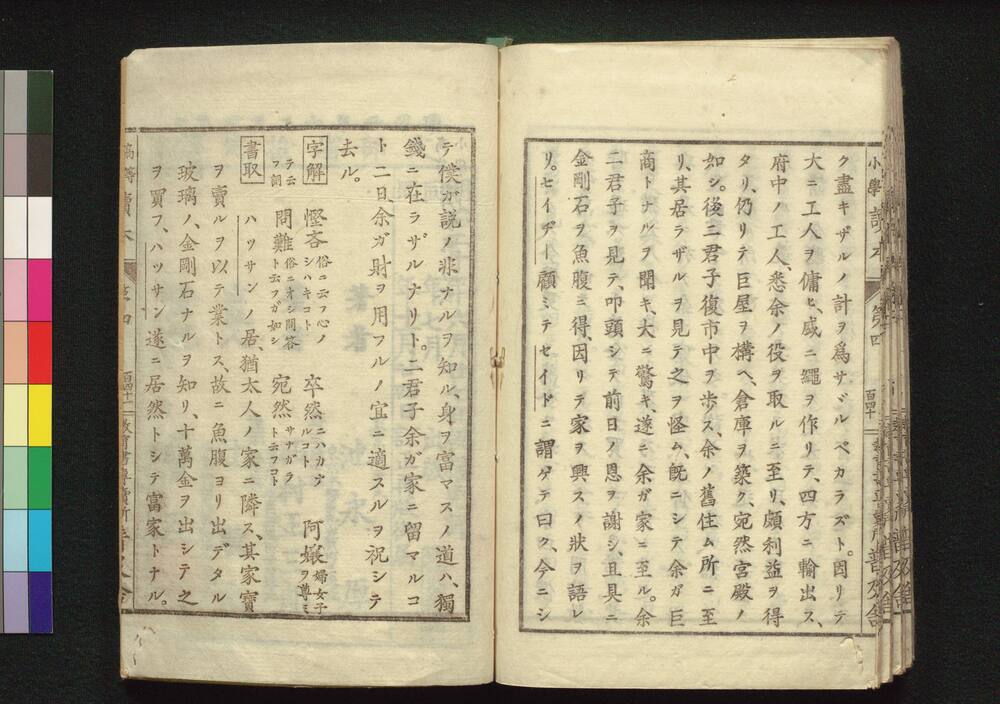 小學讀本 第四 百四十 普及舍
ク盡キザルノ計ヲ爲サヾルベカラズト。因リテ
大ニ工人ヲ傭ヒ、盛ニ繩ヲ作リテ、四方ニ輸出ス、
府中ノ工人、悉余ノ役ヲ取ルニ至リ、頗利益ヲ得
タリ、仍リテ巨屋ヲ構ヘ、倉庫ヲ築ク、宛然宮殿ノ
如シ。後二君子復市中ヲ歩ス、余ノ舊住ム所ニ至
リ、其居ラザルヲ見テ之ヲ怪ム、既ニシテ余ガ巨
商トナルヲ聞キ、大ニ驚キ、遂ニ余ガ家ニ至ル。余
二君子ヲ見テ、叩頭シテ前日ノ恩ヲ謝シ、且具ニ
金剛石ヲ魚腹ニ得、因リテ家ヲ興スノ狀ヲ語レ
リ。セイヂー顧ミテセイドニ謂ゲテ曰ク、今ニシ
テ僕ガ説ノ非ナルヲ知ル、身ヲ富マスノ道ハ、獨
錢ニ在ラザルナリト。二君子余ガ家ニ留マルコ
ト二日、余ガ財ヲ用フルノ宜ニ適スルヲ祝シテ
去ル。
字解 慳吝 俗ニ云フ心ノシハキコト 卒然 ニハカナルコト、 阿孃 婦女子ヲ尊ミ
テ云フ詞 問難 俗ニオシ問答ト云フガ如シ 宛然 サナガラト云フコト
書取 ハッサンノ居、猶太人ノ家ニ隣ス、其家寶
ヲ賣ルヲ以テ業トス、故ニ魚腹ヨリ出デタル
玻璃ノ、金剛石ナルヲ知リ、十萬金ヲ出シテ之
ヲ買フ、ハッサン遂ニ居然トシテ富家トナル。
高等讀本 百四十一